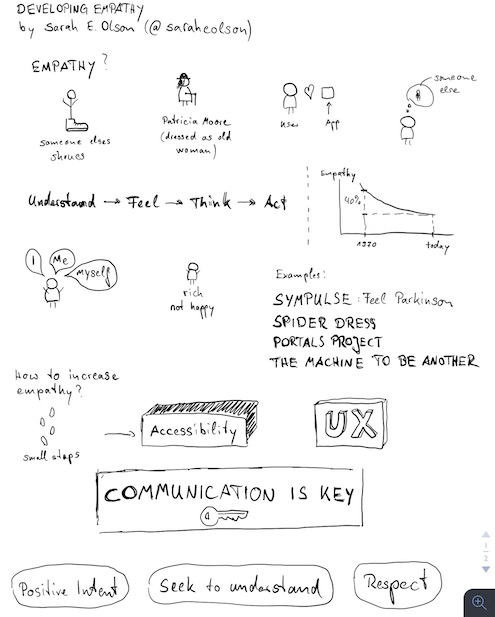 DEVELOPING EMPATHY
by Sarah E. Olson (@saraheolson)
EMPATHY?
someone elses
shoues
Patricia Moore
(dressed as old
woman)
User
App
someone
else
Understand → Feel → Think → Act
Empathy
40%
1970
today
I
Me
Myself
rich
not happy
Examples:
SYMPULSE: Feel Parkinson
SPIDER DRESS
PORTALS PROJECT
THE MACHINE TO BE ANOTHER
How to increase
empathy?
small steps
Accessibility
UX
COMMUNICATION IS KEY
Positive Intent
Seek to understand
Respect
1
2